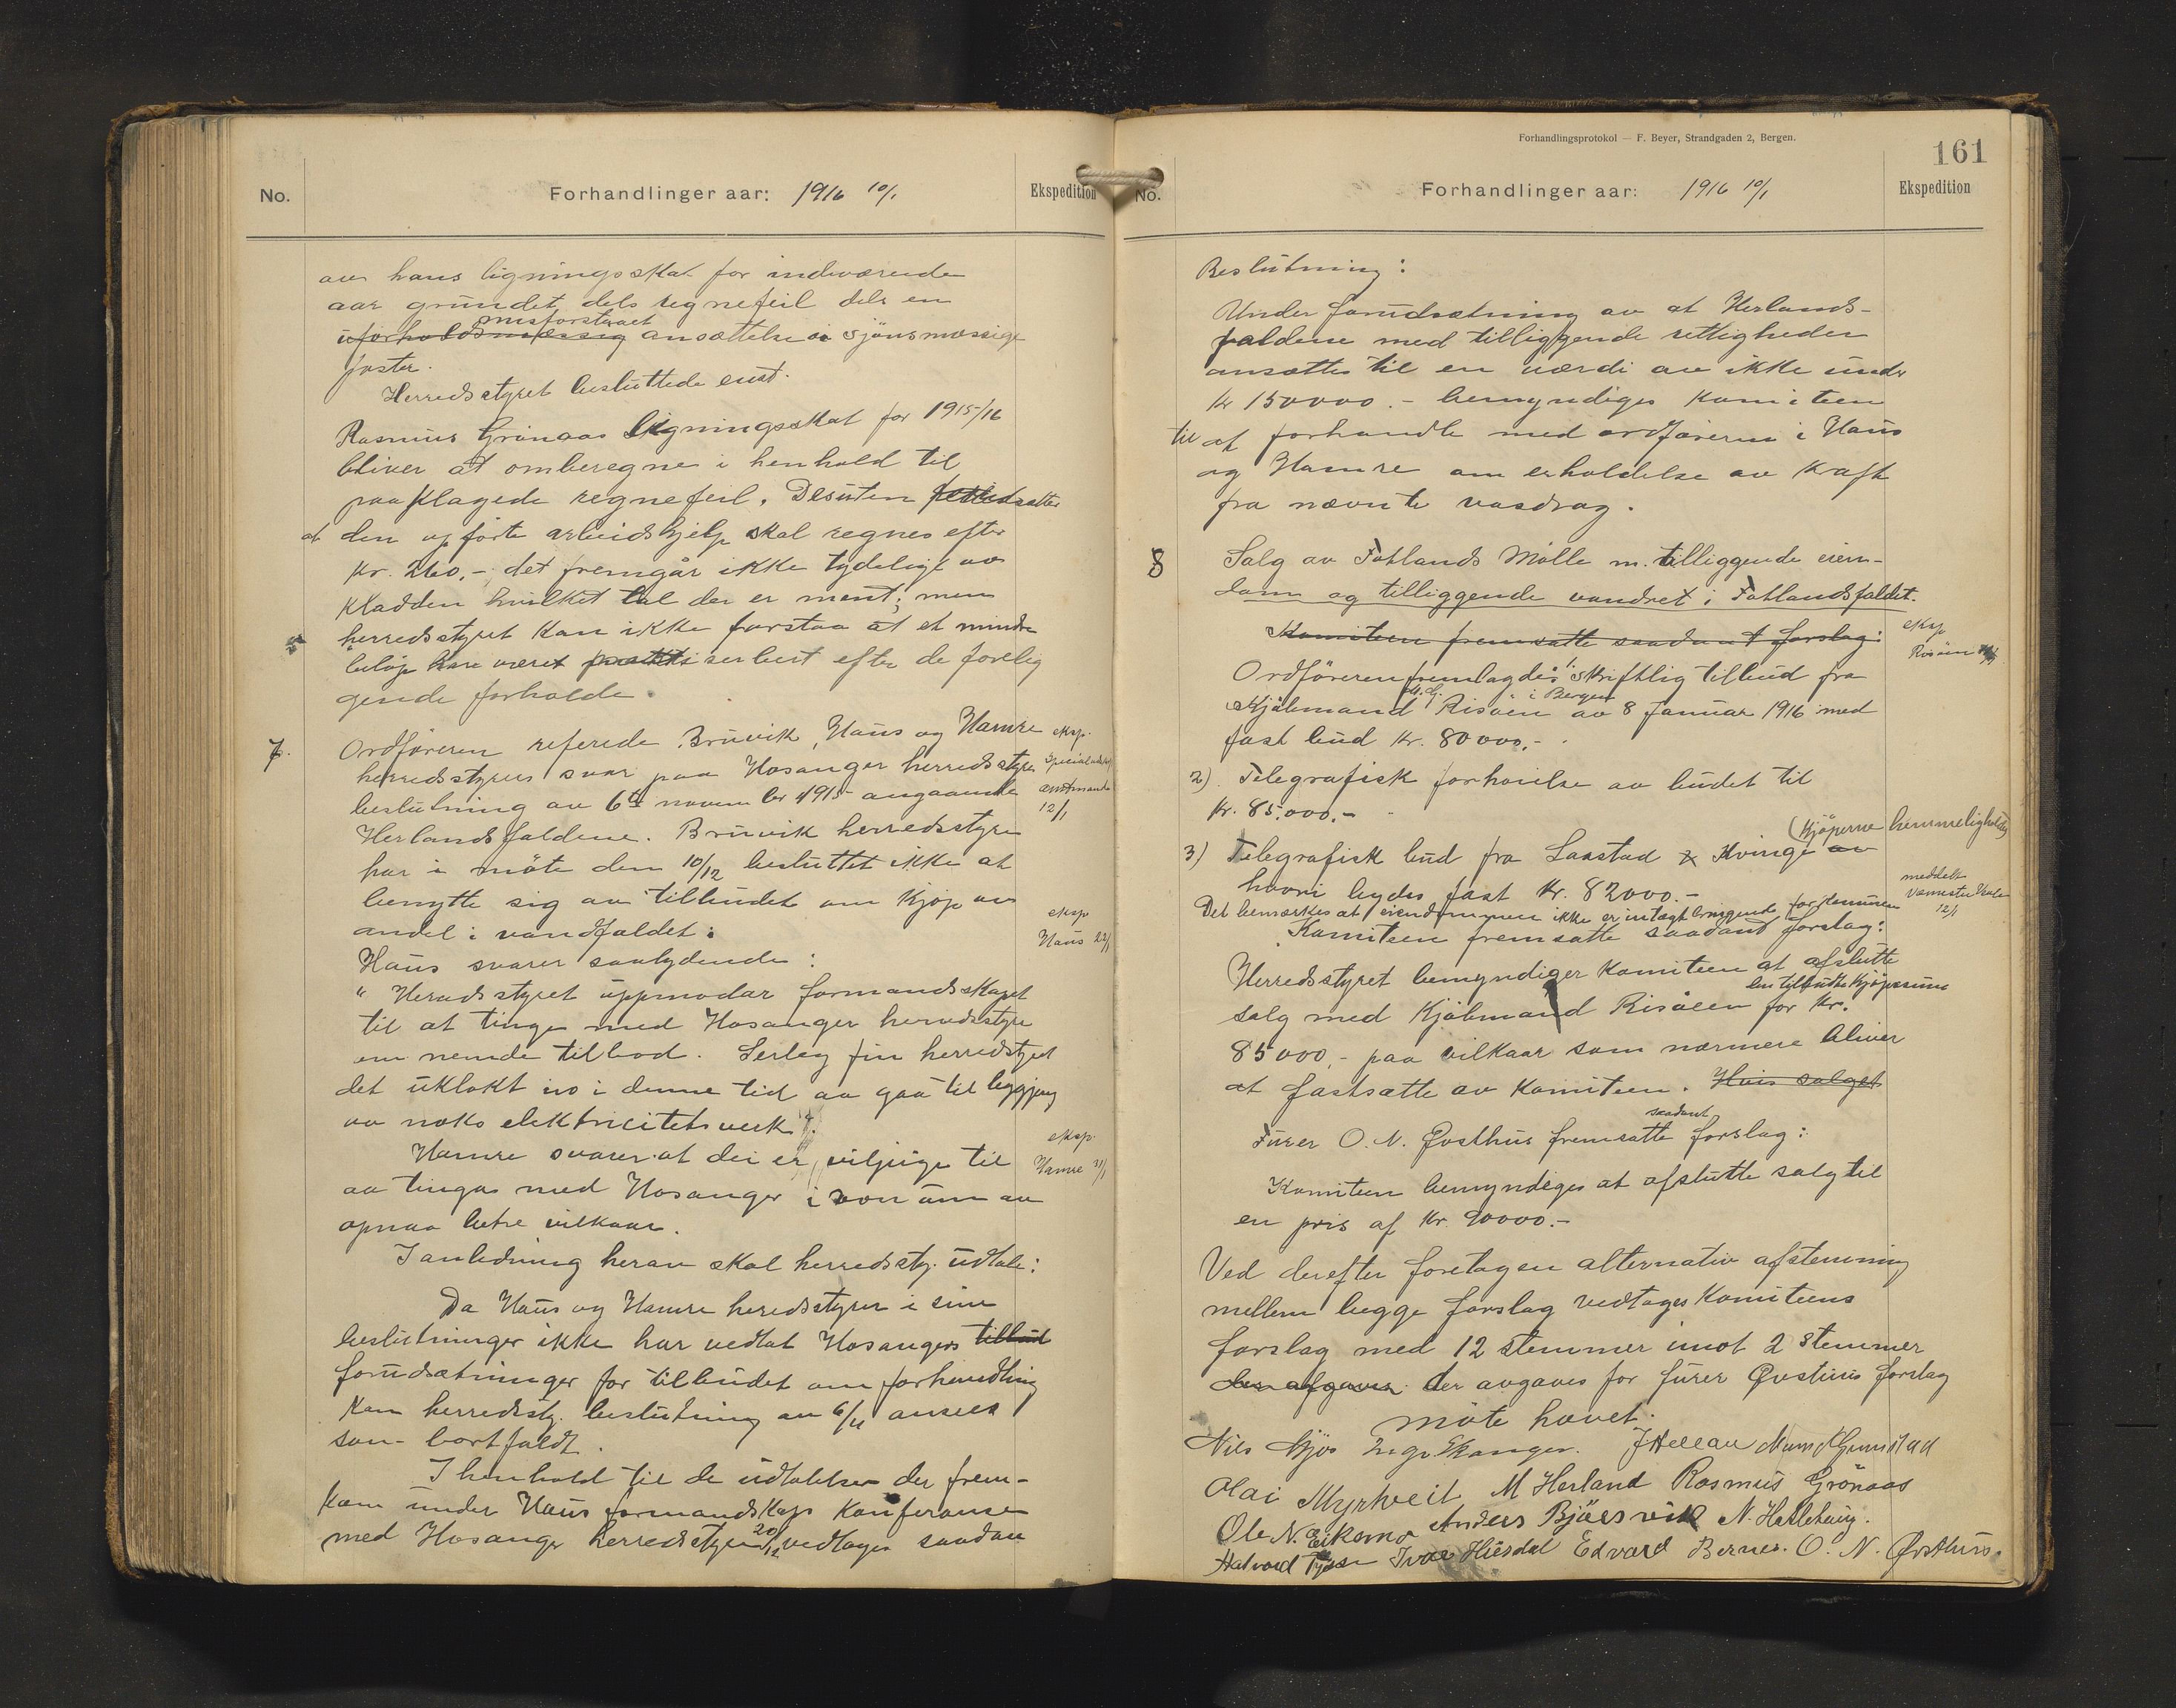 No.
Forhandlinger aar: 1916 10/1
Ekspedition
av hans ligningsskat for indeværende
aar grundet dels regnefeil dels en
misforstaaet
uforholdsmæssig ansættelse i sjönsmæssige
poster.
Herredsstyret besluttede enst.
Rasmus Grönaas ligningsskat for 1915/16
bliver at omberegne i henhold til
paaklagede regnefeil. Desuten
at den opförte arbeidshjelp skal regnes efter
kr. 260.-; det fremgår ikke tydelige av
kladden hvilket tal der er ment; men
herredsstyret kan ikke forstaa at et mindre
belöp kan være efter de forelig
gende forholde.
7. Ordföreren refererede Bruvik, Haus og Hamre
herredsstyrers svar paa Hosanger herredsstyres
beslutning av 6te november 1915 angaaende
Herlandsfaldene. Bruvik herredsstyre
har i möte den 10/12 besluttet ikke at
benytte sig av tilbudet om kjöp av
andel i vandfaldet.
Haus svarer saalydende:
" Heradsstyret uppmodar formandsskapet
til at tinge med Hosanger heradsstyre
um nemde tilbod. Serleg fin herredstyret
det uklokt no i denne tid aa gaa til byggjing
av noko elektricitetsverk".
Hamre svarer at dei er viljuge til
aa tingas med Hosanger i von um aa
opnaa betre vilkaar.
I anledning herav skal herredssty. udtale:
Da Haus og Hamre heredsstyrer i sine
beslutninger ikke har vedtat Hosangers tilbud
forudsætninger for tilbudet om forhandling
kan herredssty. beslutning av 6/11 ansees
som bortfaldt.
I henhold til de udtalelser der frem-
kom under Haus formandskaps konferanse
med Hosanger herredsstyre 20/12 vedtages saadan
eksp.
amtmand
12/1
eksp
Haus 22/1
eksp.
Hamre 31/1
Forhandlingsprotokol — F. Beyer, Strandgaden 2, Bergen.
161
No.
Forhandlinger aar: 1916 10/1
Ekspedition
Beslutning:
Under forudsætning av at Herlands-
faldene med tilliggende rettigheder
ansættes til en værdi av ikke under
kr 150000.- bemyndiges komiteen
til at forhandle med ordförerne i Haus
og Hamre om erholdelse av kraft
fra nævnte vasdrag.
8 Salg av Fotlands Mölle m. tilliggende eien-
dom og tilliggende vandret i Fotlandsfaldet.
Komiteen fremsatte saadant forslag:
Ordföreren fremlagde: 1. skriftlig tilbud fra
i Bergen
Kjöbmand Risöen av 8 Januar 1916 med
fast bud kr. 80000.-
2) Telegrafisk forhöielse av budet til
kr. 85,000.-
(kjöperne hemmeligholdes)
3) Telegrafisk bud fra Laastad & Kvinge
hvori bydes fast kr. 82000.-
Det bemerkes at eiendommen ikke er intægtbringende for kommunen
Komiteen fremsatte saadant forslag:
Herredsstyret bemyndiger komiteen at afslutte
en tilbudte kjöpesum
salg med Kjöbmand Risöen for kr.
85000.- paa vilkaar som nærmere bliver
at fastsætte av komiteen. Hvis salget
saadant
Furer O. N. Østhus fremsatte forslag:
Komiteen bemyndiges at afslutte salg til
en pris af kr. 90000.-
Ved derefter foretagen alternativ afstemning
mellem begge forslag vedtages komiteens
forslag med 12 stemmer imot 2 stemmer
der afgaves der avgaves for furer Østhus forslag
möte hævet.
eksp
Risöen
meddelt
12/1
Nils Mjös Inge Ekanger.
Olai Myrtveit M Herland Rasmus Grönaas
Ole N. Eikemo Anders Björsvik N. Hatlebrug.
Halvard Ivar Hisdal Edvard Bernes. O. N. Østhus.